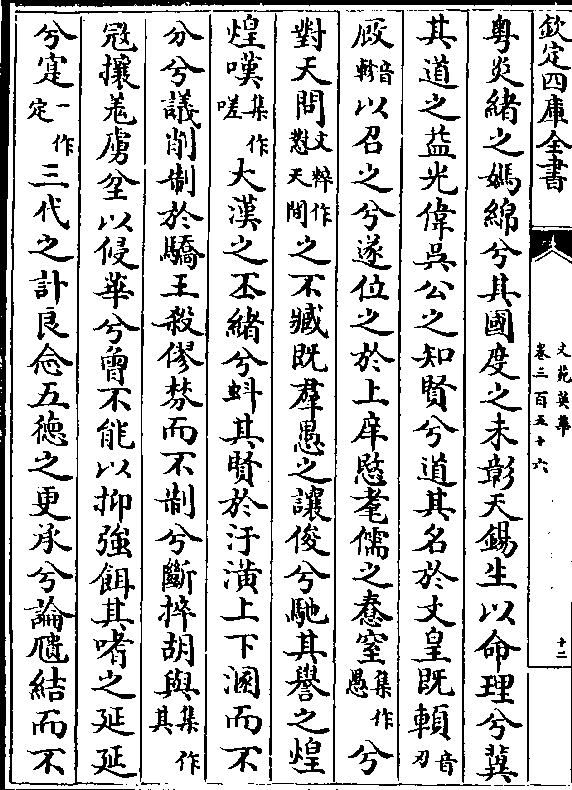 欽定四庫全書
文苑英華
卷三百五十六
十二
粤炎緒之嫣綿兮其國度之未彰天錫生以命理兮冀
其道之益光偉吳公之知賢兮道其名於文皇既頼音刃
厥音軫以召之兮遂位之於上庠愍耄儒之惷窒集作愚兮
對天問文粹作懟天問之不臧既羣愚之讓俊兮馳其譽之煌
煌嘆集作嗟大漢之丕緒兮蚪其賢於汙潢上下溷而不
分兮議削制於驕王殺僇棼而不制兮斷捽胡與集作其
冦攘羗虜坌以侵華兮曾不能以抑強餌其嗜之延延
兮寔一作定三代之計良念五德之更承兮論隱結而不